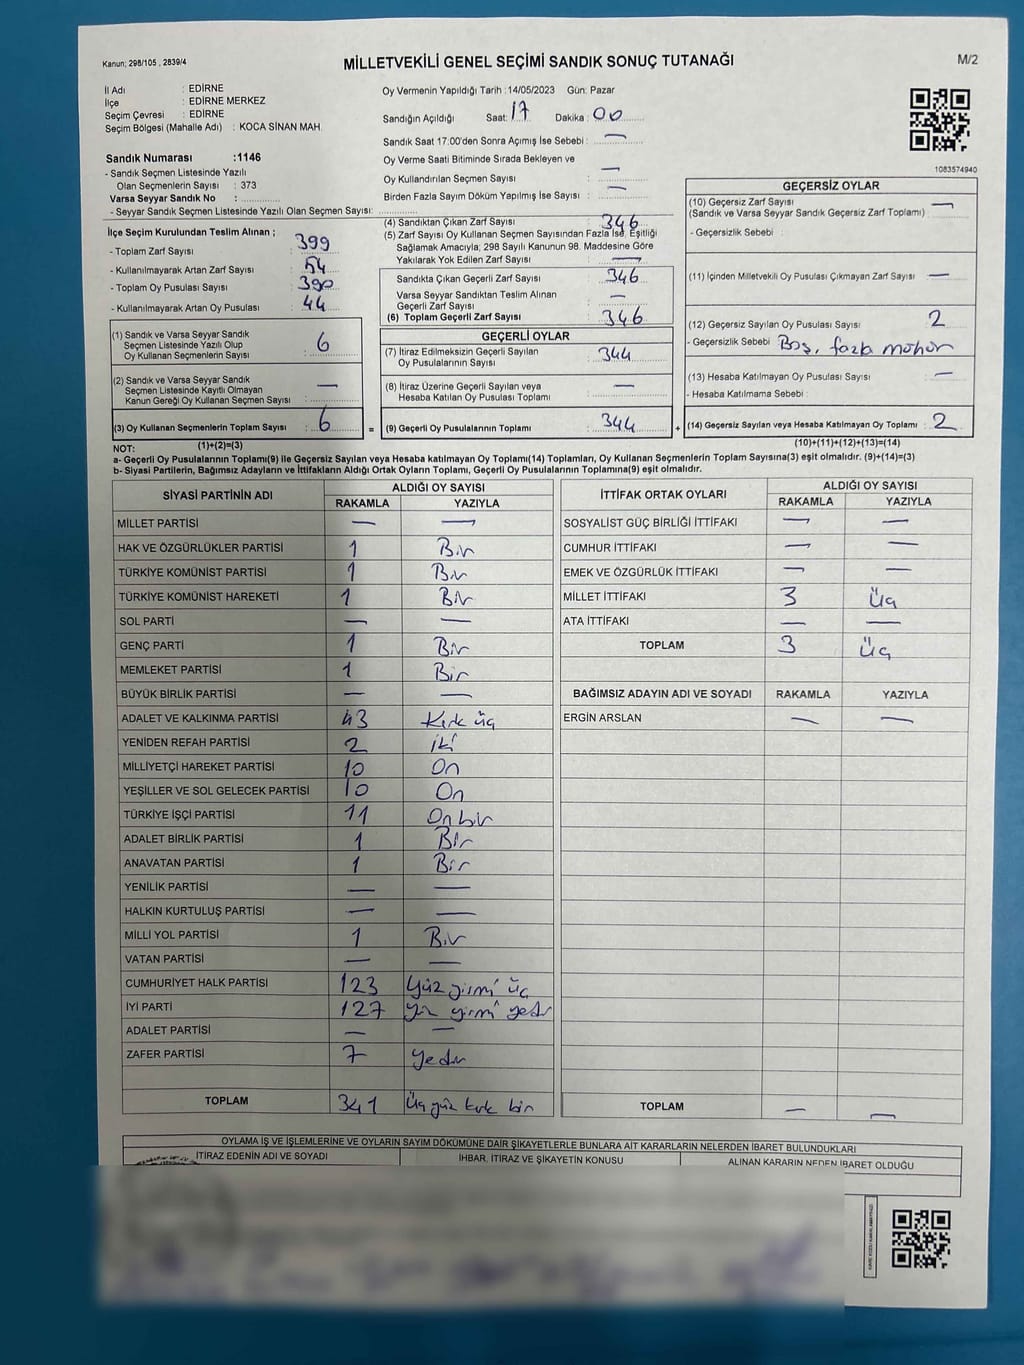 Kanun; 298/105 , 2839/4
MİLLETVEKİLİ GENEL SEÇİMİ SANDIK SONUÇ TUTANAĞI
M/2
İl Adı : EDİRNE
İlçe : EDİRNE MERKEZ
Seçim Çevresi : EDİRNE
Seçim Bölgesi (Mahalle Adı) : KOCA SİNAN MAH.
Sandık Numarası :1146
- Sandık Seçmen Listesinde Yazılı
Olan Seçmenlerin Sayısı : 373
Varsa Seyyar Sandık No :
- Seyyar Sandık Seçmen Listesinde Yazılı Olan Seçmen Sayısı:
Oy Vermenin Yapıldığı Tarih :14/05/2023 Gün: Pazar
Sandığın Açıldığı Saat: 17 Dakika : 00
Sandık Saat 17:00'den Sonra Açımış İse Sebebi : —
Oy Verme Saati Bitiminde Sırada Bekleyen ve
Oy Kullandırılan Seçmen Sayısı : —
Birden Fazla Sayım Döküm Yapılmış İse Sayısı : —
1083574940
İlçe Seçim Kurulundan Teslim Alınan ;
- Toplam Zarf Sayısı : 399
- Kullanılmayarak Artan Zarf Sayısı : 54
- Toplam Oy Pusulası Sayısı : 390
- Kullanılmayarak Artan Oy Pusulası : 44
(1) Sandık ve Varsa Seyyar Sandık
Seçmen Listesinde Yazılı Olup
Oy Kullanan Seçmenlerin Sayısı : 6
(2) Sandık ve Varsa Seyyar Sandık
Seçmen Listesinde Kayıtlı Olmayan
Kanun Gereği Oy Kullanan Seçmen Sayısı : —
(3) Oy Kullanan Seçmenlerin Toplam Sayısı : 6
(1)+(2)=(3)
(4) Sandıktan Çıkan Zarf Sayısı : 346
(5) Zarf Sayısı Oy Kullanan Seçmen Sayısından Fazla İse, Eşitliği
Sağlamak Amacıyla; 298 Sayılı Kanunun 98. Maddesine Göre
Yakılarak Yok Edilen Zarf Sayısı : —
Sandıkta Çıkan Geçerli Zarf Sayısı : 346
Varsa Seyyar Sandıktan Teslim Alınan
Geçerli Zarf Sayısı : —
(6) Toplam Geçerli Zarf Sayısı : 346
GEÇERLİ OYLAR
(7) İtiraz Edilmeksizin Geçerli Sayılan
Oy Pusulalarının Sayısı : 344
(8) İtiraz Üzerine Geçerli Sayılan veya
Hesaba Katılan Oy Pusulalarının Toplamı : —
= (9) Geçerli Oy Pusulalarının Toplamı : 344
GEÇERSİZ OYLAR
(10) Geçersiz Zarf Sayısı : —
(Sandık ve Varsa Seyyar Sandık Geçersiz Zarf Toplamı)
- Geçersizlik Sebebi :
(11) İçinden Milletvekili Oy Pusulası Çıkmayan Zarf Sayısı : —
(12) Geçersiz Sayılan Oy Pusulası Sayısı : 2
- Geçersizlik Sebebi : Boş, fazla mühür
(13) Hesaba Katılmayan Oy Pusulası Sayısı : —
- Hesaba Katılmama Sebebi :
+ (14) Geçersiz Sayılan veya Hesaba Katılmayan Oy Toplamı : 2
(10)+(11)+(12)+(13)=(14)
NOT:
a- Geçerli Oy Pusulalarının Toplamı(9) ile Geçersiz Sayılan veya Hesaba katılmayan Oy Toplamı(14) Toplamları, Oy Kullanan Seçmenlerin Toplam Sayısına(3) eşit olmalıdır. (9)+(14)=(3)
b- Siyasi Partilerin, Bağımsız Adayların ve İttifakların Aldığı Ortak Oyların Toplamı, Geçerli Oy Pusulalarının Toplamına(9) eşit olmalıdır.
SİYASİ PARTİNİN ADI ALDIĞI OY SAYISI
RAKAMLA YAZIYLA
MİLLET PARTİSİ — —
HAK VE ÖZGÜRLÜKLER PARTİSİ 1 Bir
TÜRKİYE KOMÜNİST PARTİSİ 1 Bir
TÜRKİYE KOMÜNİST HAREKETİ 1 Bir
SOL PARTİ — —
GENÇ PARTİ 1 Bir
MEMLEKET PARTİSİ 1 Bir
BÜYÜK BİRLİK PARTİSİ — —
ADALET VE KALKINMA PARTİSİ 43 Kırk üç
YENİDEN REFAH PARTİSİ 2 iki
MİLLİYETÇİ HAREKET PARTİSİ 10 On
YEŞİLLER VE SOL GELECEK PARTİSİ 10 On
TÜRKİYE İŞÇİ PARTİSİ 11 On bir
ADALET BİRLİK PARTİSİ 1 Bir
ANAVATAN PARTİSİ 1 Bir
YENİLİK PARTİSİ — —
HALKIN KURTULUŞ PARTİSİ — —
MİLLİ YOL PARTİSİ 1 Bir
VATAN PARTİSİ — —
CUMHURİYET HALK PARTİSİ 123 Yüz yirmi üç
İYİ PARTİ 127 Yüz yirmi yedi
ADALET PARTİSİ — —
ZAFER PARTİSİ 7 Yedi
TOPLAM 341 Üç yüz kırk bir
İTTİFAK ORTAK OYLARI ALDIĞI OY SAYISI
RAKAMLA YAZIYLA
SOSYALİST GÜÇ BİRLİĞİ İTTİFAKI — —
CUMHUR İTTİFAKI — —
EMEK VE ÖZGÜRLÜK İTTİFAKI — —
MİLLET İTTİFAKI 3 Üç
ATA İTTİFAKI — —
TOPLAM 3 Üç
BAĞIMSIZ ADAYIN ADI VE SOYADI RAKAMLA YAZIYLA
ERGİN ARSLAN — —
TOPLAM — —
OYLAMA İŞ VE İŞLEMLERİNE VE OYLARIN SAYIM DÖKÜMÜNE DAİR ŞİKAYETLERLE BUNLARA AİT KARARLARIN NELERDEN İBARET BULUNDUKLARI
İTİRAZ EDENİN ADI VE SOYADI
İHBAR, İTİRAZ VE ŞİKAYETİN KONUSU
ALINAN KARARIN NEDEN İBARET OLDUĞU